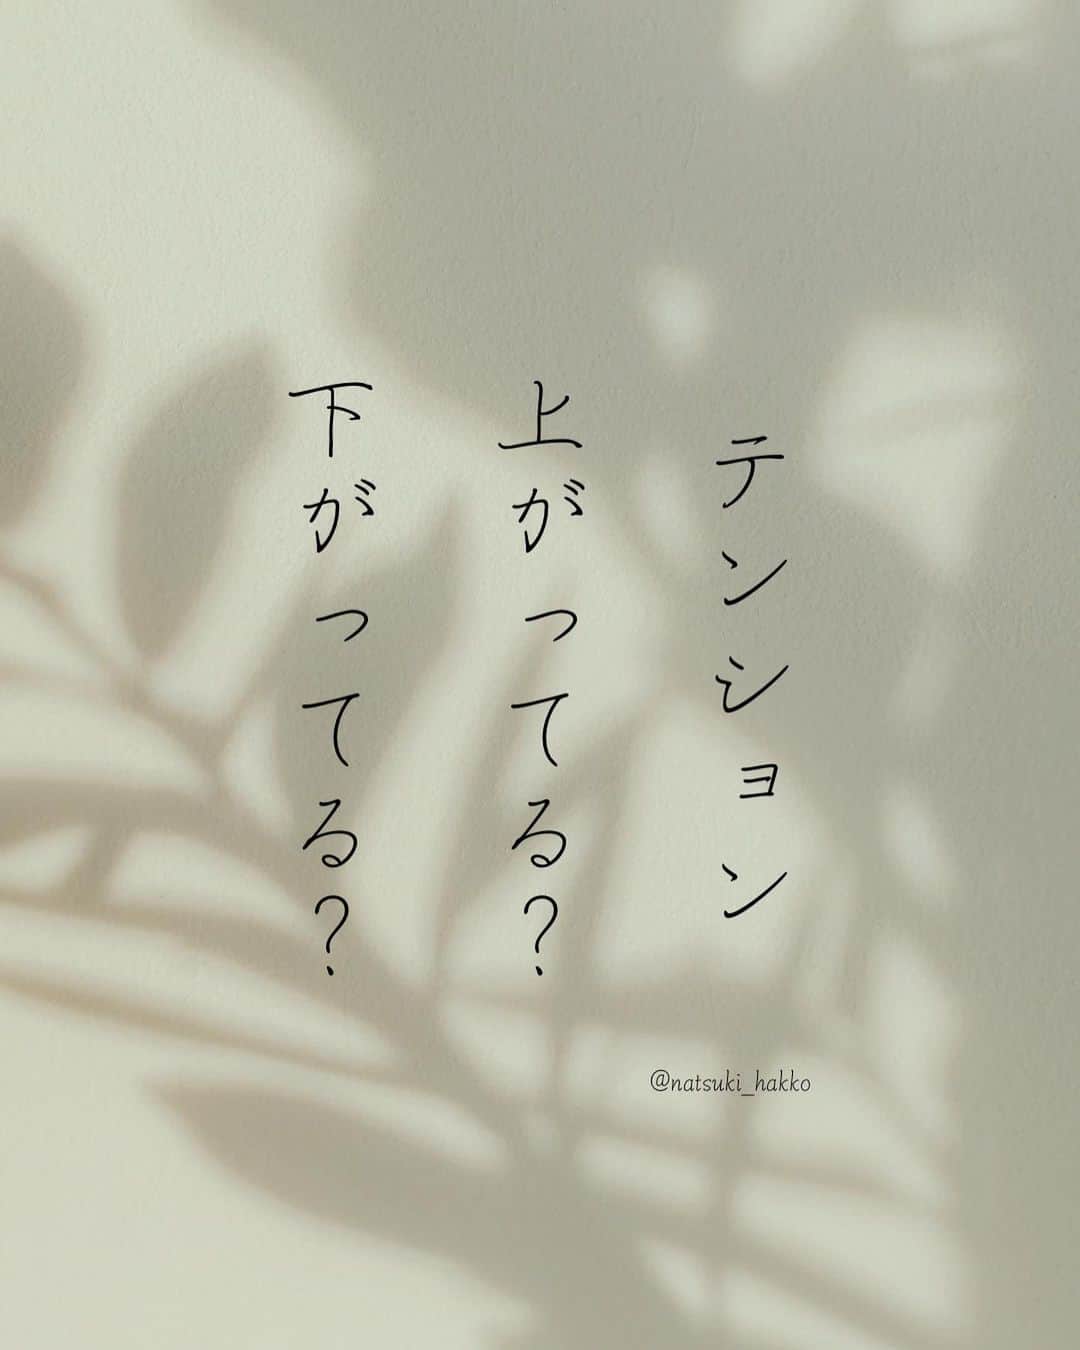 テンション
上がってる?
下がってる?
@natsuki_hakko